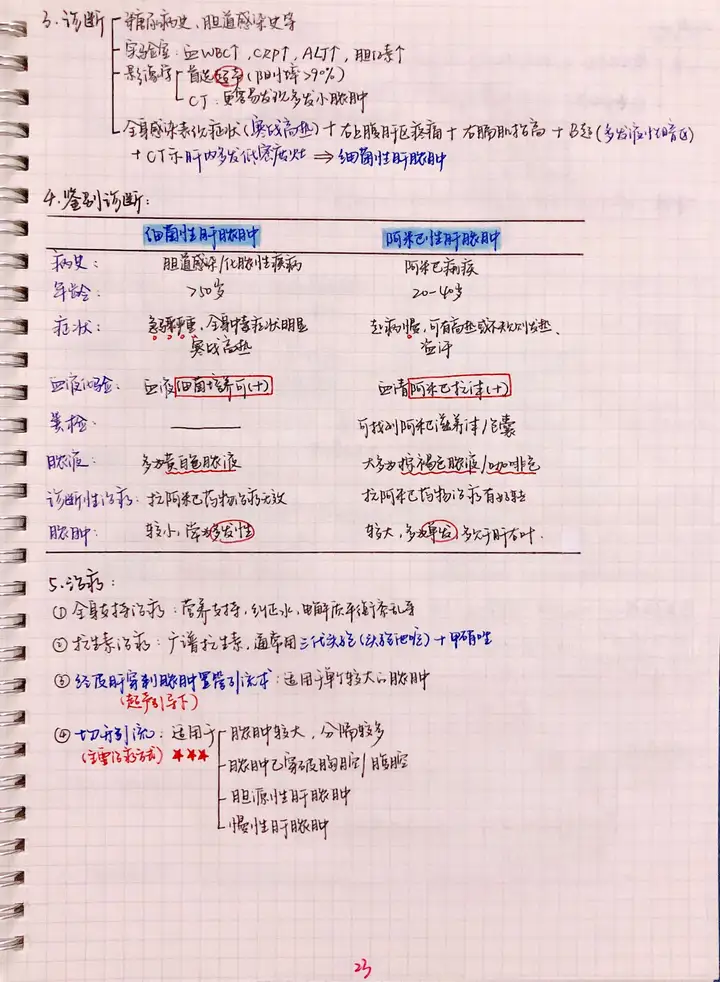 3. 诊断
糖尿病史、胆道感染史等
实验室：血WBC↑，CRP↑，ALT↑，胆红素↑
影像学
首选超声(阳性率>90%)
CT：更容易发现多发小脓肿
全身感染表现症状(寒战高热)＋右上腹肝区疼痛＋右膈肌抬高＋B超(多发液性暗区)
＋CT示肝内多发低密度灶 ⇒ 细菌性肝脓肿
4. 鉴别诊断：
细菌性肝脓肿 阿米巴性肝脓肿
病史： 胆道感染/化脓性疾病 阿米巴痢疾
年龄： >50岁 20-40岁
症状： 急骤严重，全身中毒症状明显 起病慢，可有高热或不规则发热、
寒战高热 盗汗
血液化验： 血液细菌培养可(+) 血清阿米巴抗体(+)
粪检： —— 可找到阿米巴滋养体/包囊
脓液： 多为黄白色脓液 大多为棕褐色脓液/咖啡色
诊断性治疗：抗阿米巴药物治疗无效 抗阿米巴药物治疗有好转
脓肿： 较小，常为多发性 较大，多为单发，多见于肝右叶.
5. 治疗：
① 全身支持治疗：营养支持，纠正水，电解质平衡紊乱等
② 抗生素治疗：广谱抗生素，通常用三代头孢(头孢他啶)＋甲硝唑
③ 经皮肝穿刺脓肿置管引流术：适用于单个较大的脓肿
(超声引导下)
④ 切开引流：适用于
(主要治疗方式) ★★★
脓肿较大，分隔较多
脓肿已穿破胸腔/腹腔
胆源性肝脓肿
慢性肝脓肿
23